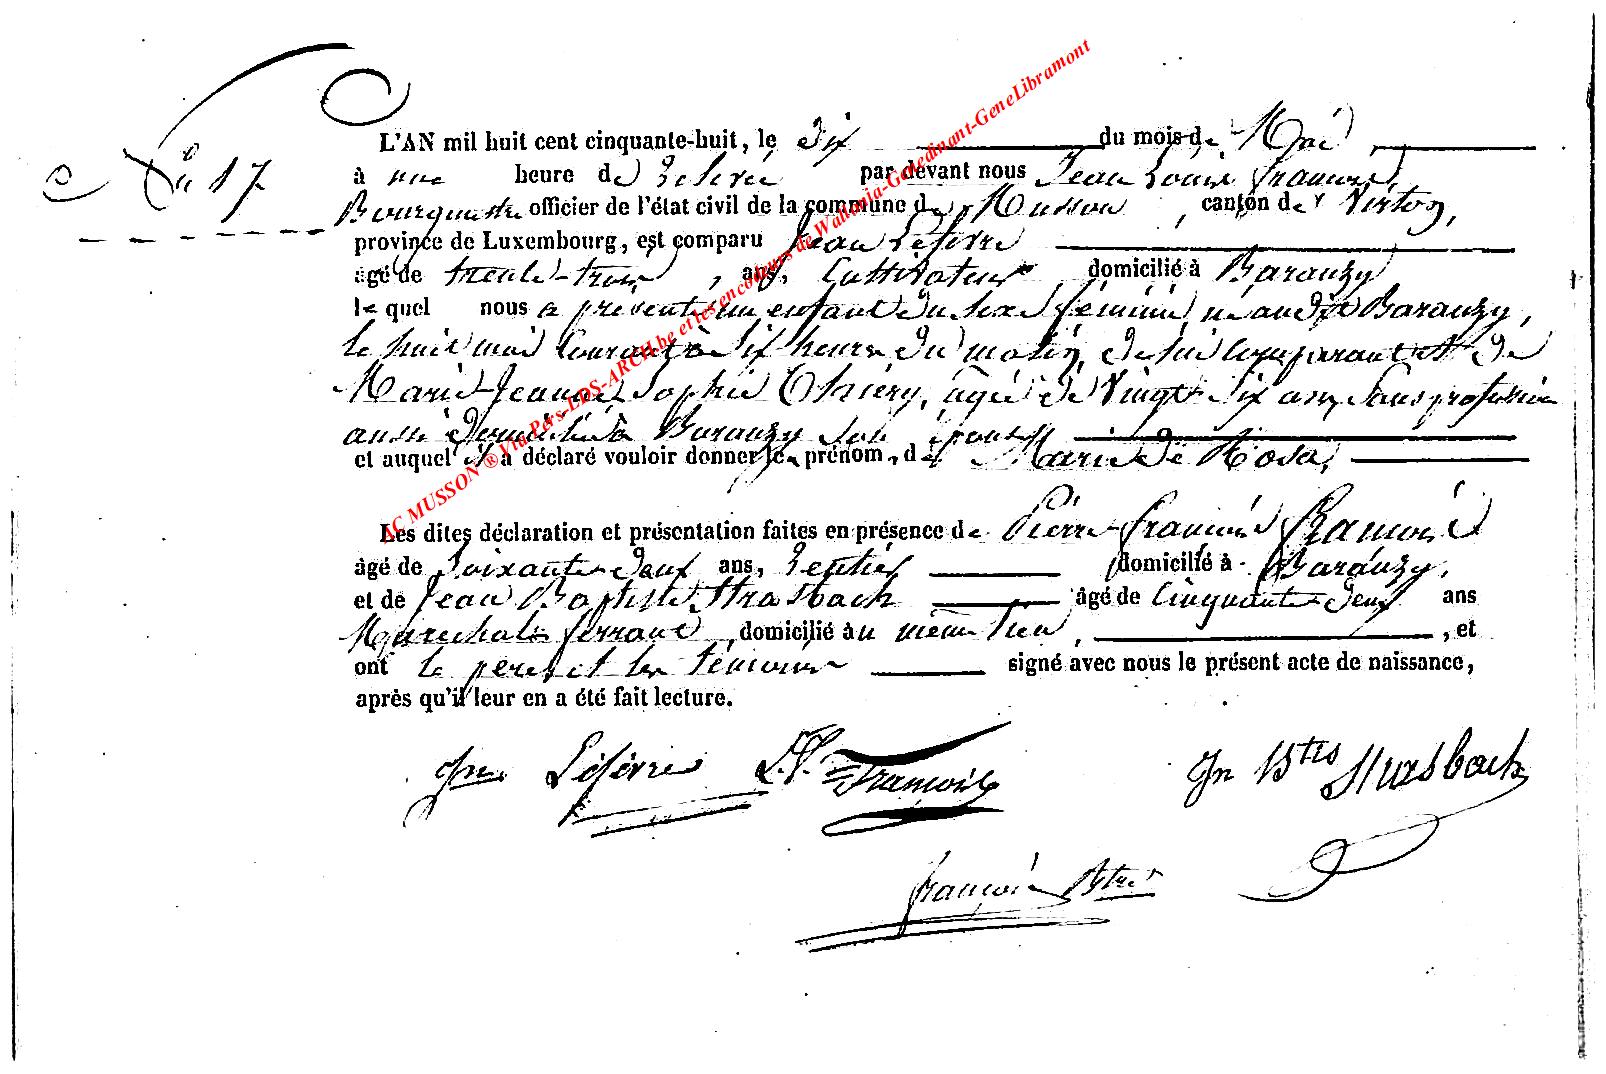 N° 17
L'AN mil huit cent cinquante-huit, le dix du mois de Mai
à une heure de relevée par devant nous Jean Louis François,
Bourgmestre officier de l'état civil de la commune de Musson, canton de Virton,
province de Luxembourg, est comparu Jean Lefevre
âgé de trente-trois, ans, Cultivateur domicilié à Baranzy
lequel nous a présenté un enfant du sexe féminin né audit Baranzy,
le huit mai courant à six heures du matin, de lui comparant et de
Marie-Jeanne Sophie Thiery, agée de vingt six ans, sans profession
aussi domiciliée à Baranzy son épouse
et auquel il a déclaré vouloir donner le prénom, de Marie Rosa,
Les dites déclaration et présentation faites en présence de Pierre-François François
âgé de soixante deux ans, rentier domicilié à Baranzy,
et de Jean Baptiste Strasbach âgé de cinquante deux ans
Maréchal ferrant, domicilié au même lieu, et
ont le père et les témoins signé avec nous le présent acte de naissance,
après qu'il leur en a été fait lecture.
Jn Lefèvre François Jn Btes Strasbach
françois Btre
AC MUSSON ® Via Pers-LDS-ARCH.be et les encodeurs de Wallonia-Genedinant-GeneLibramont